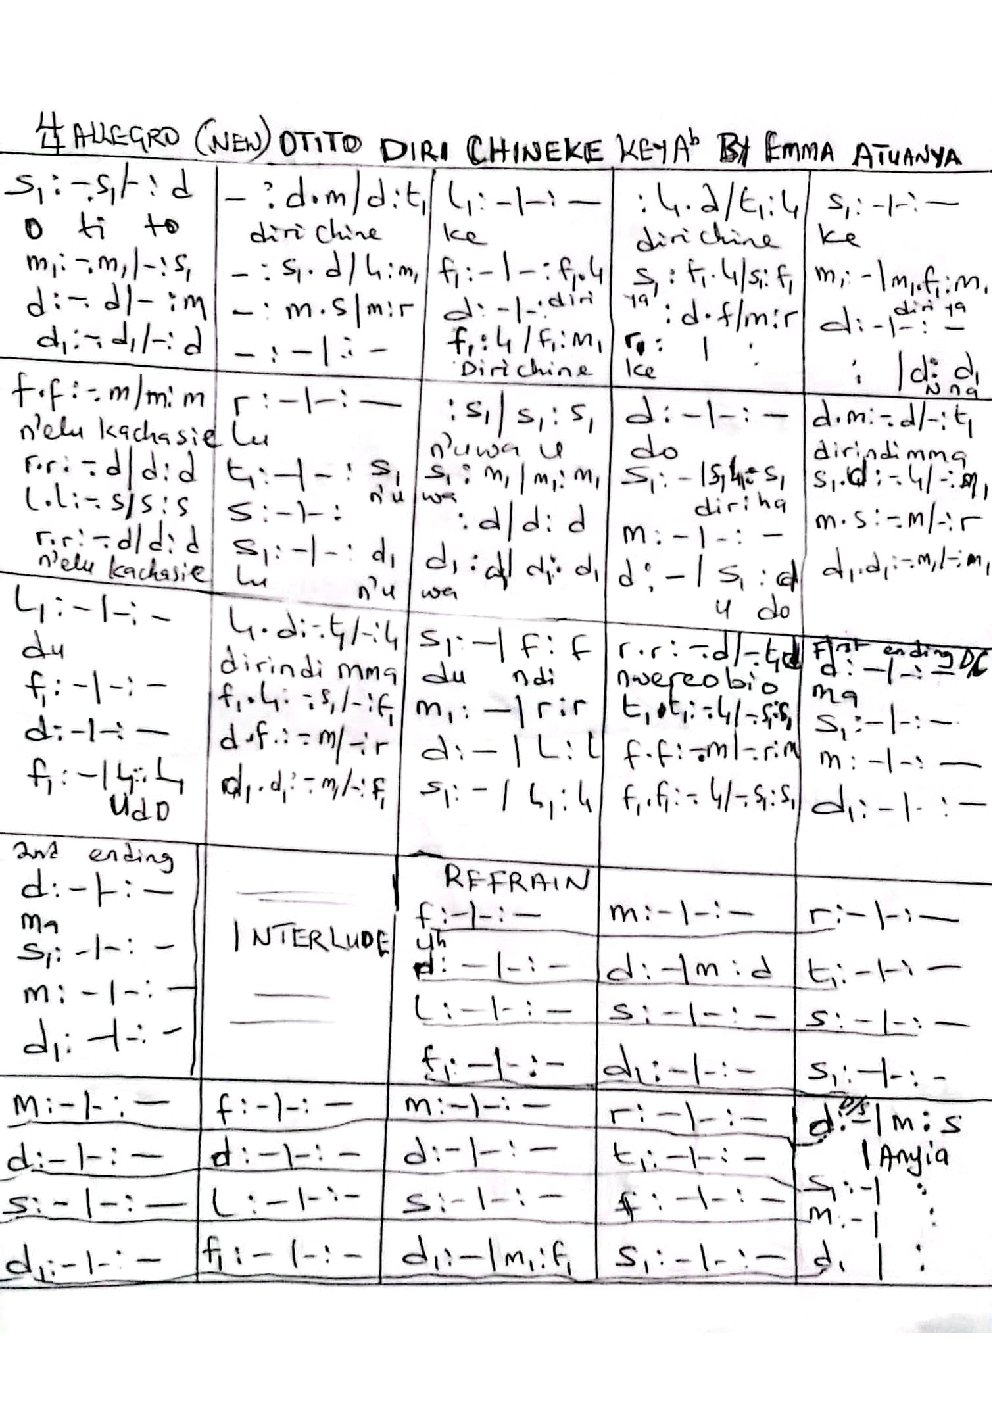 4/4 ALLEGRO (NEW) OTITO DIRI CHINEKE KEY Ab BY EMMA ATUANYA
s₁:-.s₁/-:d
o ti to
m₁:-.m₁/-:s₁
d:-.d/-:m
d₁:-.d₁/-:d
-:d.m/d:t₁
diri chine
-:s₁.d/l₁:m₁
-:m.s/m:r
-:-|:-
l₁:-|-:-
ke
f₁:-|-:f₁.l₁
diri
d:-|-:
f₁:l₁/f₁:m₁
Diri chine
:l₁.d/t₁:l₁
diri chine
s₁:t₁.l₁/s₁:f₁
ya
:d.f/m:r
r₁: | :
ke
s₁:-|-:-
ke
m₁:-|m₁.f₁:m₁
diri ya
d:-|-:-
: |d₁:d₁
N'ma
f.f:-.m/m:m
n'elu kachasie
r.r:-.d/d:d
l.l:-.s/s:s
r.r:-.d/d:d
n'elu kachasie
r:-|-:-
lu
t₁:-|-:s₁
n'u
s:-|-:
s₁:-|-:d₁
lu n'u
:s₁|s₁:s₁
n'uwa u
s₁:m₁|m₁:m₁
wa
:d|d:d
d₁:d₁|d₁:d₁
wa
d:-|-:-
do
s₁:-|s₁.l₁:s₁
diri ha
m:-|-:-
d:-|s₁:d
u do
d.m:-.d/-:t₁
dirindi mma
s₁.d:-.l₁/-:m₁
m.s:-.m/-:r
d₁.d₁:-.m₁/-:m₁
l₁:-|-:-
du
f₁:-|-:-
d:-|-:-
f₁:-|l₁:l₁
Udo
l₁.d:-.t₁/-:l₁
dirindi mma
f₁.l₁:-.s₁/-:f₁
d.f:-.m/-:r
d₁.d₁:-.m₁/-:f₁
s₁:-|f:f
du ndi
m₁:-|r:r
d:-|l:l
s₁:-|l₁:l₁
r.r:-.d/-.t₁:d
nwereobio
t₁.t₁:-.l₁/-.s₁:s₁
f.f:-.m/-.r:m
f₁.f₁:-.l₁/-.s₁:s₁
First ending DC
d:-|-:-
ma
s₁:-|-:-
m:-|-:-
d₁:-|-:-
2nd ending
d:-|-:-
ma
s₁:-|-:-
m:-|-:-
d₁:-|-:-
INTERLUDE
REFRAIN
f:-|-:-
uh
d:-|-:-
l:-|-:-
f₁:-|-:-
m:-|-:-
d:-|m:d
s:-|-:-
d₁:-|-:-
r:-|-:-
t₁:-|-:-
s:-|-:-
s₁:-|-:-
m:-|-:-
d:-|-:-
s:-|-:-
d₁:-|-:-
f:-|-:-
d:-|-:-
l:-|-:-
f₁:-|-:-
m:-|-:-
d:-|-:-
s:-|-:-
d₁:-|m₁:f₁
r:-|-:-
t₁:-|-:-
f:-|-:-
s₁:-|-:-
D/S
d:-|m:s
|Anyia
s₁:-| :
m:-| :
d₁ | :